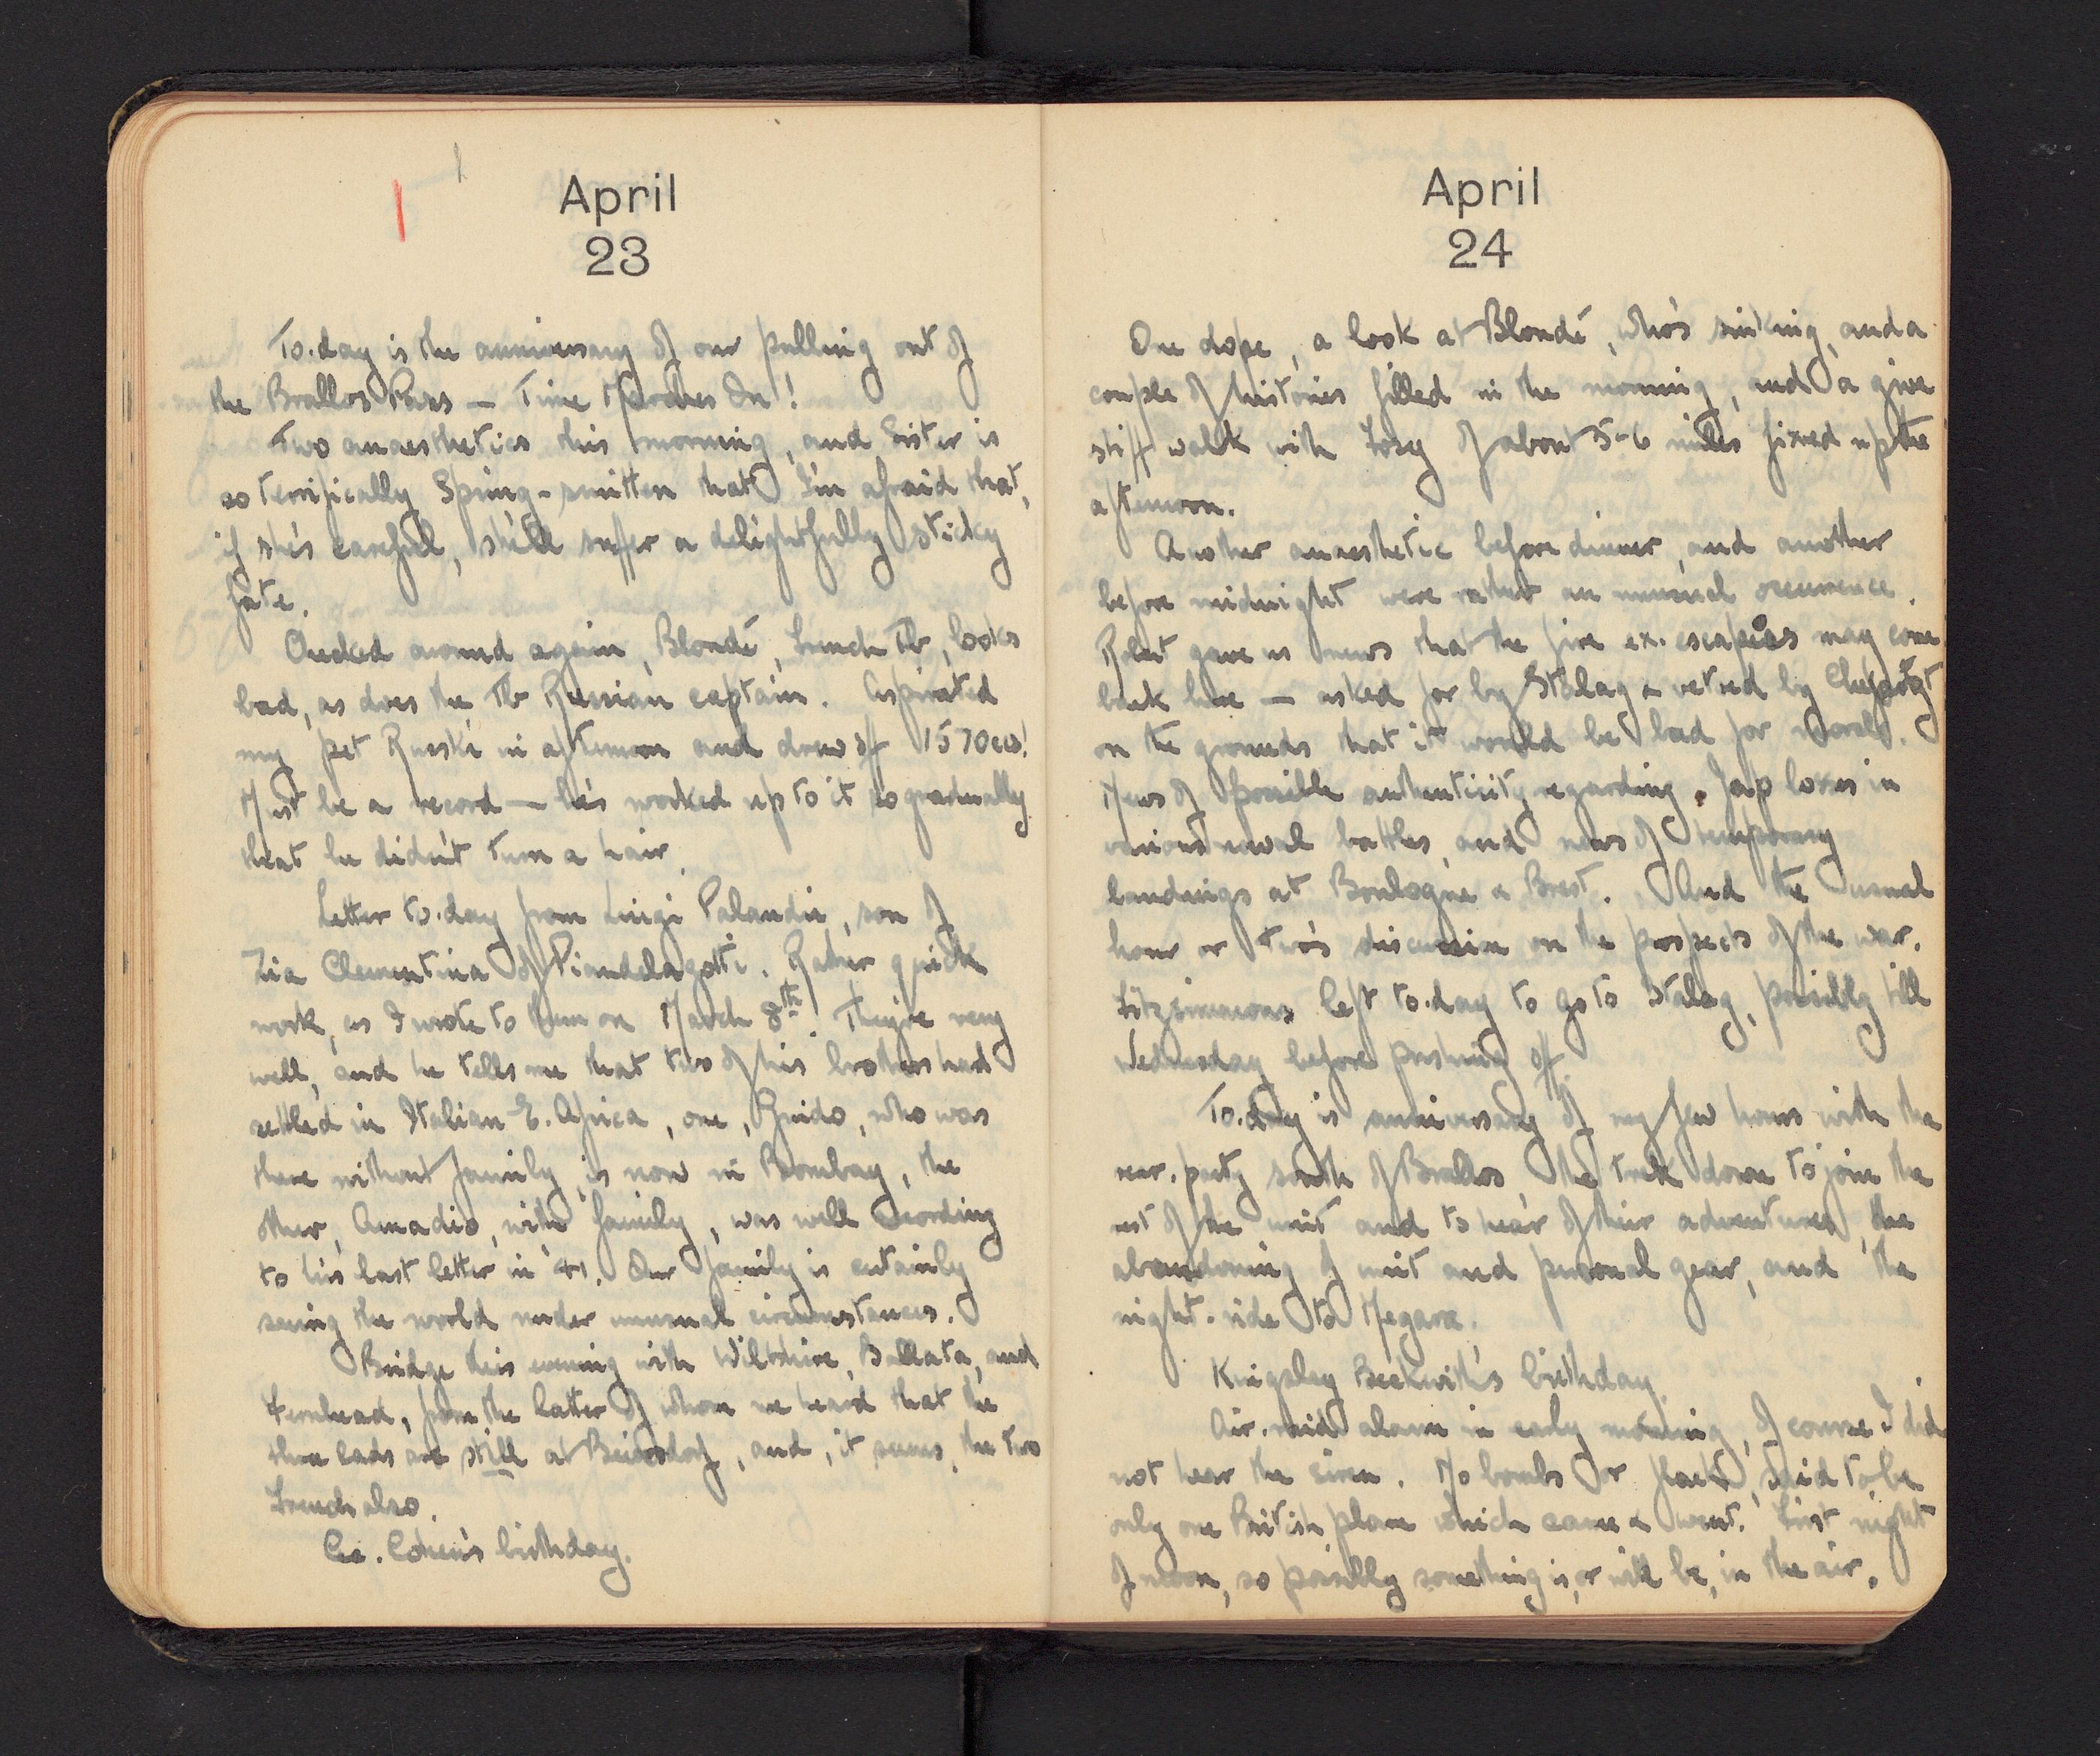 April
23
To.day is the anniversary of our pulling out of
the Brallos Pass — Time Marches On!
Two anaesthetics this morning, and Sister is
so terrifically Spring-smitten that I'm afraid that,
if she's careful, she'll suffer a delightfully sticky
fate.
Checked around again, Blondé, French Tb, looks
bad, as does the Tb Russian captain. Aspirated
my pet Ruski in afternoon and drew off 1570ccs!
Must be a record — he's worked up to it so gradually
that he didn't turn a hair.
Letter to.day from Luigi Palandri, son of
Zia Clementina of Piandelagotti. Rather quick
work, as I wrote to them on March 8th. They're very
well, and he tells me that two of his brothers had
settled in Italian E. Africa, one, Guido, who was
there without family, is now in Bombay, the
other, Amadio, with family, was well according
to his last letter in '41. Our family is certainly
seeing the world under unusual circumstances.
Bridge this evening with Wiltshire, Ballata, and
Fernhead, from the latter of whom we heard that the
three lads are still at , and, it seems, the two
French also.
Cohen's birthday.
April
24
One dope, a look at Blondé, who's sinking, and a
couple of histories filled in the morning, and a
stiff walk with of about 5-6 miles fixed up the
afternoon.
Another anaesthetic before dinner, and another
before midnight were rather an unusual occurrence.
Robert gave us news that the five ex.escapees may come
back here — asked for by Stalag & vetoed by
on the grounds that it would be bad for morale.
News of possible authenticity regarding Jap losses in
various naval battles, and news of temporary
landings at Boulogne & Brest. And the usual
hour or two's discussion on the prospects of the war.
Fitzsimmons left to.day to go to Stalag, possibly till
Wednesday before pushing off.
To.day is anniversary of my few hours with the
rear.party south of Brallos, the trek down to join the
rest of the unit and to hear of their adventures, the
abandoning of unit and personal gear, and the
night.ride to Megara.
Kingsley Beckwith's birthday.
Air.raid alarm in early morning, of course I did
not hear the siren. No bombs or flack, said to be
only one British plane which came & went. First night
of moon, so possibly something is, or will be, in the air.